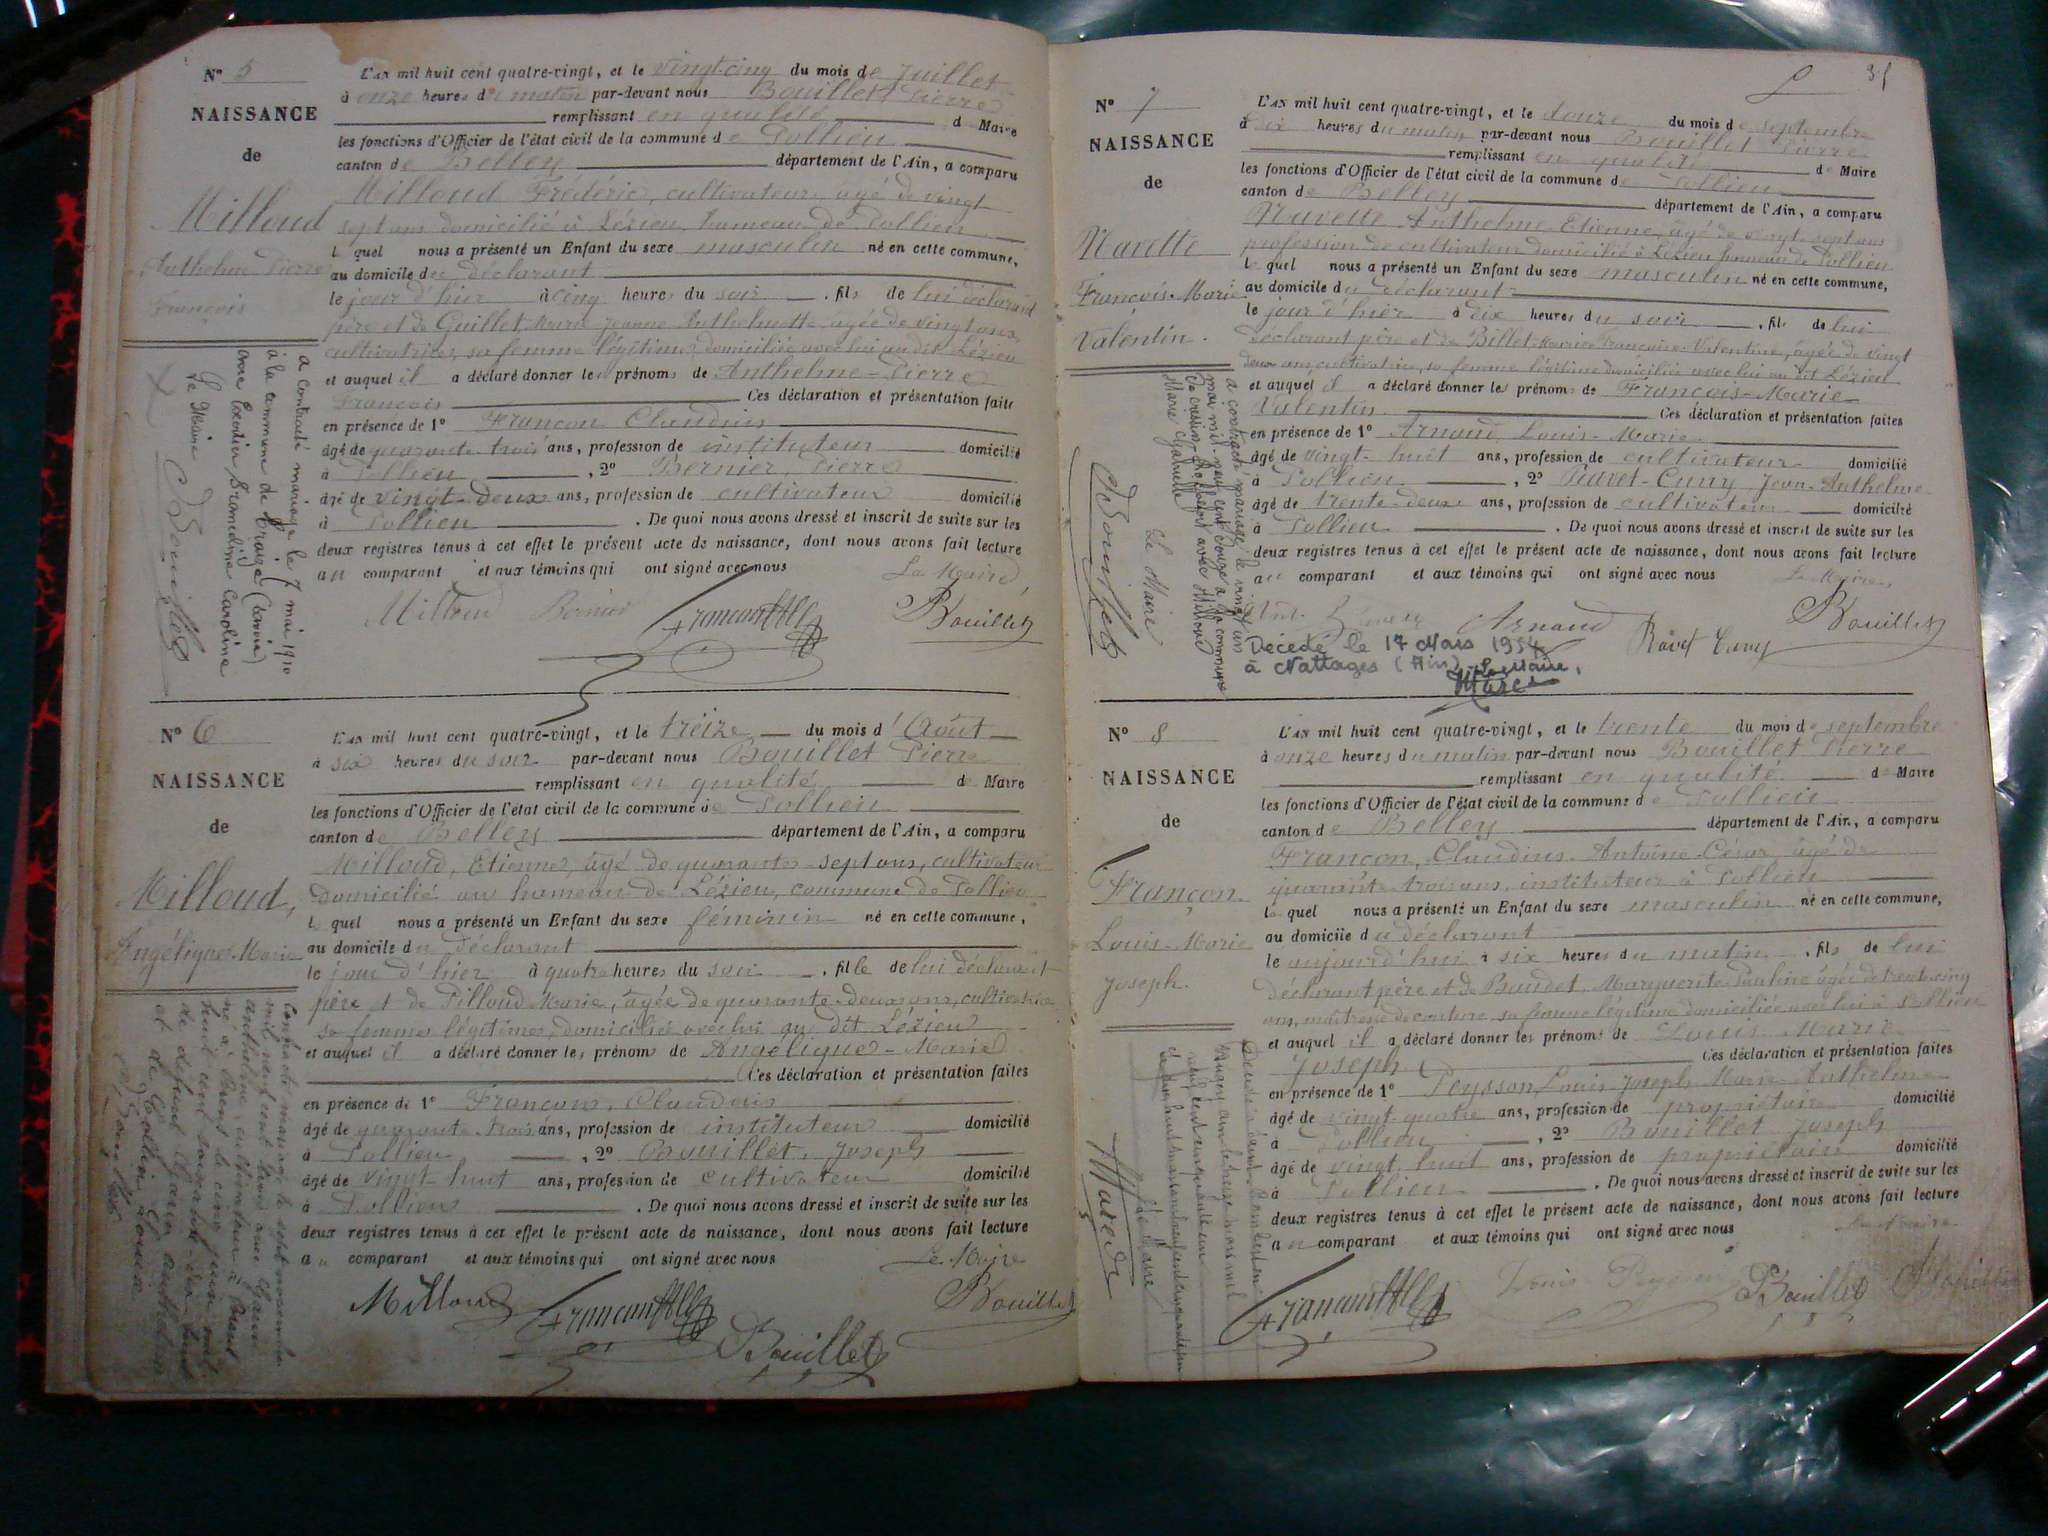 Nº 5
NAISSANCE
de
Milloud
Anthelme Pierre
François
L'AN mil huit cent quatre-vingt, et le vingt-cinq du mois de Juillet
à onze heures du matin par-devant nous Bouillet Pierre
remplissant en qualité de Maire
les fonctions d'Officier de l'état civil de la commune de Pollieu
canton de Belley département de l'Ain, a comparu
Milloud Frédéric, cultivateur, âgé de vingt
sept ans domicilié à Lézieu, hameau de Pollieu
lequel nous a présenté un Enfant du sexe masculin né en cette commune,
au domicile du déclarant
le jour d'hier à cinq heures du soir , fils de lui déclarant
père et de Guillet Marie Jeanne Anthelmette âgée de vingt ans,
cultivatrice, sa femme légitime, domiciliée avec lui au dit Lézieu
et auquel il a déclaré donner les prénoms de Anthelme-Pierre
François Ces déclaration et présentation faites
en présence de 1º Françon Claudius
âgé de quarante trois ans, profession de instituteur domicilié
à Pollieu , 2º Bernier, Pierre
âgé de vingt-deux ans, profession de cultivateur domicilié
à Pollieu . De quoi nous avons dressé et inscrit de suite sur les
deux registres tenus à cet effet le présent acte de naissance, dont nous avons fait lecture
au comparant et aux témoins qui ont signé avec nous
Le Maire
Milloud Bernier Françon Bouillet
a contracté mariage le 7 mai 1910
à la commune de Traize (Savoie)
avec Exertier Frandine Caroline
Le Maire
Nº 6
NAISSANCE
de
Milloud,
Angélique-Marie
L'AN mil huit cent quatre-vingt, et le treize du mois d'Août
à six heures du soir par-devant nous Bouillet Pierre
remplissant en qualité de Maire
les fonctions d'Officier de l'état civil de la commune de Pollieu
canton de Belley département de l'Ain, a comparu
Milloud, Etienne, âgé de quarante-sept ans, cultivateur
domicilié au hameau de Lézieu, commune de Pollieu
lequel nous a présenté un Enfant du sexe féminin né en cette commune,
au domicile du déclarant
le jour d'hier à quatre heures du soir , fille de lui déclarant
père et de Pilloud Marie, âgée de quarante-deux ans, cultivatrice
sa femme légitime, domiciliée avec lui au dit Lézieu
et auquel il a déclaré donner les prénoms de Angélique-Marie
Ces déclaration et présentation faites
en présence de 1º Françon, Claudius
âgé de quarante trois ans, profession de instituteur domicilié
à Pollieu , 2º Bouillet, Joseph
âgé de vingt huit ans, profession de cultivateur domicilié
à Pollieu . De quoi nous avons dressé et inscrit de suite sur les
deux registres tenus à cet effet le présent acte de naissance, dont nous avons fait lecture
au comparant et aux témoins qui ont signé avec nous
Le Maire
Milloud Françon Bouillet Bouillet
mariage le sept novembre
mil neuf cent
cultivateur à
né à le cinq juin mil
huit cent soixante
de défunt
et de Louise
35
Nº 7
NAISSANCE
de
Navette
François-Marie
Valentin.
L'AN mil huit cent quatre-vingt, et le douze du mois de septembre
à dix heures du matin par-devant nous Bouillet Pierre
remplissant en qualité de Maire
les fonctions d'Officier de l'état civil de la commune de Pollieu
canton de Belley département de l'Ain, a comparu
Navette Anthelme Etienne, âgé de vingt-sept ans
profession de cultivateur domicilié à Lézieu hameau de Pollieu
lequel nous a présenté un Enfant du sexe masculin né en cette commune,
au domicile du déclarant
le jour d'hier à dix heures du soir , fils de lui
déclarant père et de Billet Marie Françoise Valentine, âgée de vingt
deux ans, cultivatrice, sa femme légitime domiciliée avec lui au dit Lézieu
et auquel il a déclaré donner les prénoms de François-Marie
Valentin Ces déclaration et présentation faites
en présence de 1º Arnaud, Louis-Marie
âgé de vingt-huit ans, profession de cultivateur domicilié
à Pollieu , 2º Ravet-Curry Jean-Anthelme
âgé de trente-deux ans, profession de cultivateur domicilié
à Pollieu . De quoi nous avons dressé et inscrit de suite sur les
deux registres tenus à cet effet le présent acte de naissance, dont nous avons fait lecture
au comparant et aux témoins qui ont signé avec nous
Le Maire
Arnaud Ravet Curry Bouillet
Décédé le 17 Mars 1954
à Nattages (Ain) Le Maire,
a contracté mariage le vingt un
mai mil neuf cent douze à la commune
de avec
Marie Gabrielle
Le Maire
Nº 8
NAISSANCE
de
Françon
Louis-Marie
Joseph.
L'AN mil huit cent quatre-vingt, et le trente du mois de septembre
à onze heures du matin par-devant nous Bouillet Pierre
remplissant en qualité de Maire
les fonctions d'Officier de l'état civil de la commune de Pollieu
canton de Belley département de l'Ain, a comparu
Françon, Claudius-Antoine-César, âgé de
quarante trois ans, instituteur à Pollieu
lequel nous a présenté un Enfant du sexe masculin né en cette commune,
au domicile du déclarant
le aujourd'hui à six heures du matin , fils de lui
déclarant père et de Baudet, Marguerite Pauline âgée de trente cinq
ans, maîtresse de couture, sa femme légitime domiciliée avec lui à Pollieu
et auquel il a déclaré donner les prénoms de Louis-Marie
Joseph. Ces déclaration et présentation faites
en présence de 1º Peysson, Louis-Joseph Marie Anthelme
âgé de vingt quatre ans, profession de propriétaire domicilié
à Pollieu , 2º Bouillet Joseph
âgé de vingt huit ans, profession de propriétaire domicilié
à Pollieu . De quoi nous avons dressé et inscrit de suite sur les
deux registres tenus à cet effet le présent acte de naissance, dont nous avons fait lecture
au comparant et aux témoins qui ont signé avec nous
Le Maire
Françon Louis Peysson Bouillet Bouillet
Décédé à Saint Rambert en
Bugey (Ain) le treize mars mil
neuf cent cinquante un
Le Maire